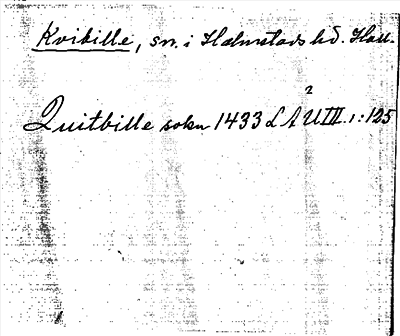 Kvibille, sn. i Halmstads hd. Hall.
Quitbille sokn 1433 L A Ü III. 1:125
2